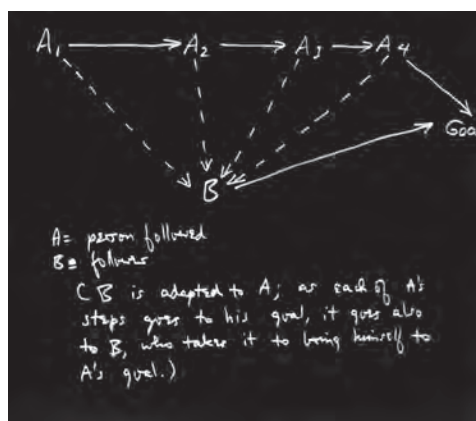 A₁ A₂ A₃ A₄
Goal
B
A = person followed
B = follower
( B is adapted to A; as each of A's
steps goes to his goal, it goes also
to B, who takes it to bring himself to
A's goal.)